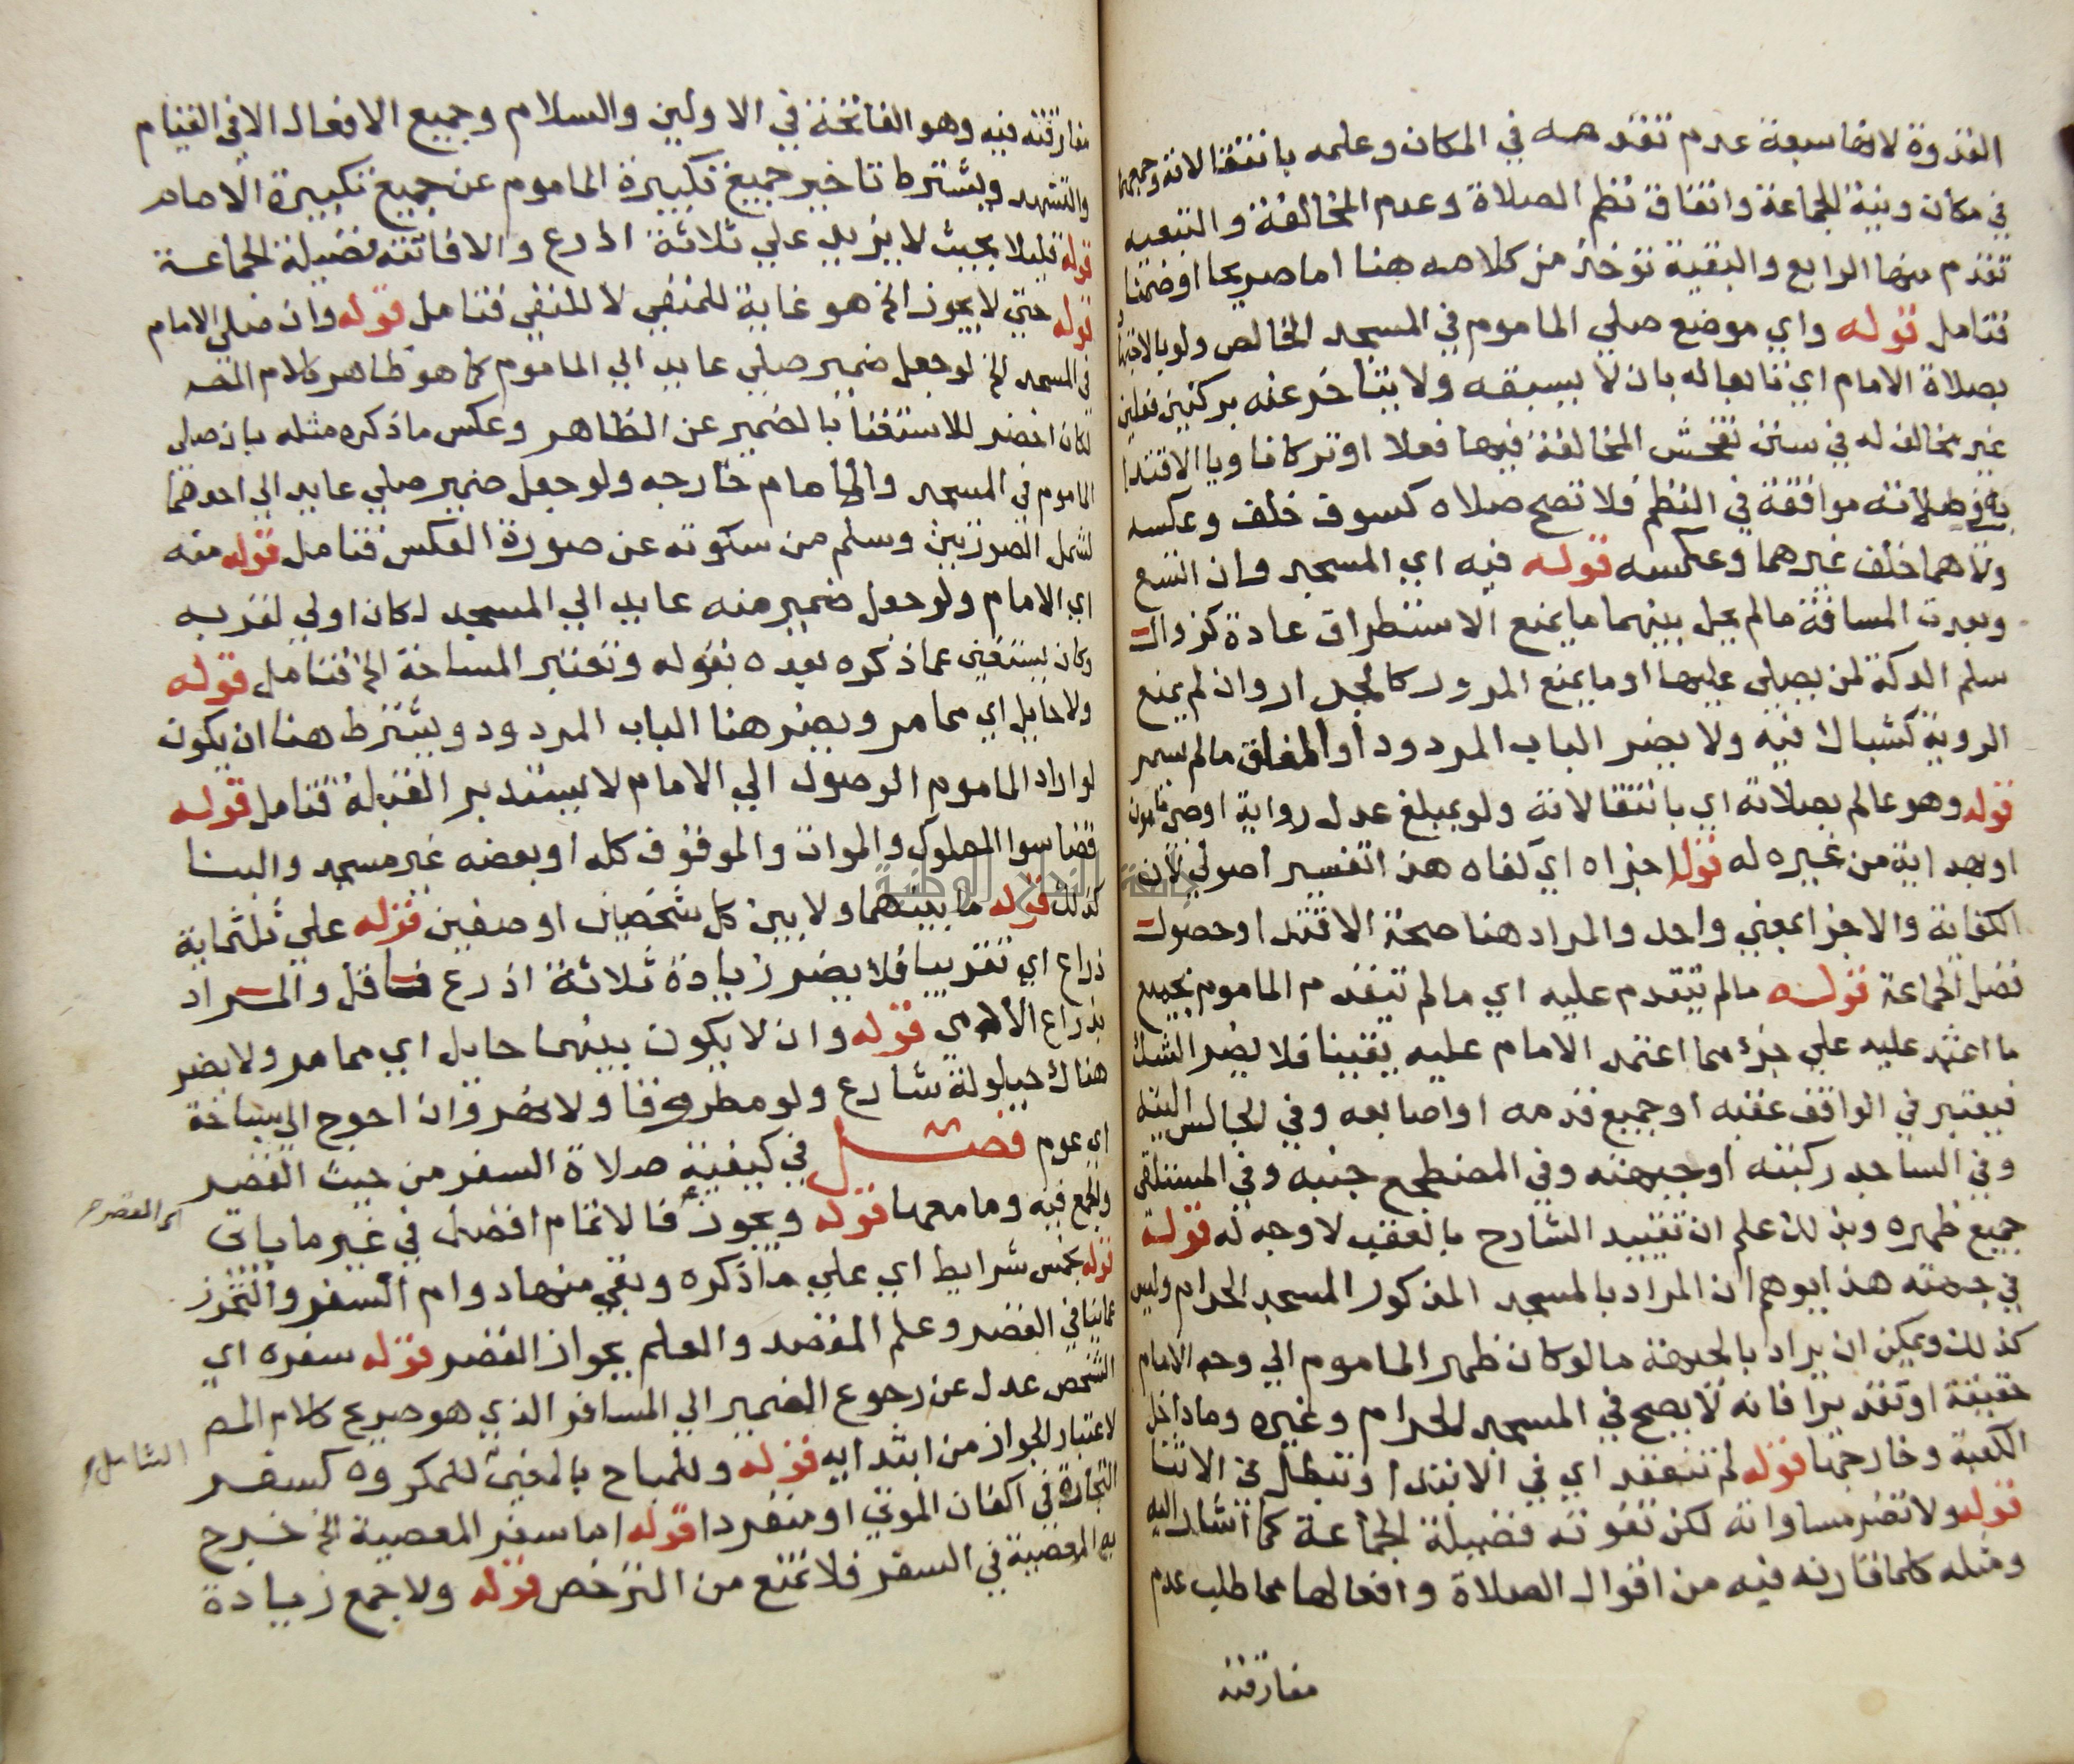 القدوة لانها سبعة عدم تقدمه في المكان وعلمه بانتقالاته وجمعهما
في مكان ونية الجماعة واتفاق نظم الصلاة وعدم المخالفة والتبعيه
تقدم منها الرابع والبقية تؤخذ من كلامه هنا اما صريحا او ضمنا
فتامل قوله واي موضع صلي الماموم في المسجد الخالص ولو بالاجتهاد
بصلاة الامام اي تابعا له بان لا يسبقه ولا يتاخر عنه بركنين فعلين
غير مخالف له في سنن تفحش المخالفة فيها فعلا او تركا ناويا الاقتدا
به وصلاته موافقة في النظم فلا تصح صلاه كسوف خلف وعكسه
ولا هما خلف غيرهما وعكسه قوله فيه اي المسجد وان اتسع
وبعدت المسافة مالم يحل بينهما ما يمنع الاستطراق عادة كزوال
سلم الدكة لمن يصلي عليها او ما يمنع المرور كالجدار وان لم يمنع
الروية كشباك فيه ولا يضر الباب المردود او المغلق مالم يسمر
قوله وهو عالم بصلاته اي بانتقالاته ولو بمبلغ عدل رواية او صبي مامون
او هداية من غيره له قوله اجزاه اي كفاه هذا تفسير اصولي لان
الكفاية والاجزا بمعني واحد والمراد هنا صحة الاقتدا وحصول
فضل الجماعة قوله مالم يتقدم عليه اي مالم يتقدم الماموم بجميع
ما اعتمد عليه علي جزء مما اعتمد الامام عليه يقينا فلا يضر الشك
فيعتبر في الواقف عقبه او جميع قدمه او اصابعه وفي الجالس اليته
وفي الساجد ركبته او جبهته وفي المضطجع جنبه وفي المستلقي
جميع ظهره وبذلك علم ان تقييد الشارح بالعقب لا وجه له قوله
في جهته هذا يوهم ان المراد بالمسجد المذكور المسجد الحرام وليس
كذلك ويمكن ان يراد بالجهة ما لو كان ظهر الماموم الي وجه الامام
حقيقة او تقديرا فانه لا يصح في المسجد الحرام وغيره وما داخل
الكعبة وخارجها قوله لم تنعقد اي في الابتدا وتبطل في الاثنا
قوله ولا تضر مساواته لكن تفوته فضيلة الجماعة كما اشار اليه
ومثله كلما قارنه فيه من اقوال الصلاة وافعالها مما طلب عدم
مفارقته
مفارقته فيه وهو الفاتحة في الاولين والسلام وجميع الافعال الا في القيام
والتشهد ويشترط تاخير جميع تكبيرة الماموم عن جميع تكبيرة الامام
قوله قليلا بحيث لا يزيد علي ثلاثة اذرع والا فاتته فضيلة الجماعة
قوله حتي لا يجوز الخ هو غاية للمنفي لا للنفي فتامل قوله وان صلي الامام
في المسجد الخ لو جعل ضمير صلي عايد الي الماموم كما هو ظاهر كلام المصـ
لكان اخصر للاستغنا بالضمير عن الظاهر وعكس ما ذكره مثله بان صلي
الماموم في المسجد والامام خارجه ولو جعل ضمير صلي عايد الي احدهما
لشمل الصورتين وسلم من سكوته عن صورة العكس فتامل قوله منه
اي الامام ولو جعل ضمير منه عايد الي المسجد لكان اولي لقربه
وكان يستغني عما ذكره بعده بقوله وتعتبر المسافة الخ فتامل قوله
ولا حايل اي مما مر ويضر هنا الباب المردود ويشترط هنا ان يكون
لو اراد الماموم الوصول الي الامام لا يستدبر القبلة فتامل قوله
فضا سوا المملوك والموات والموقوف كله او بعضه غير مسجد والبنا
كذلك قوله ما بينهما ولا بين كل شخصين او صفين قوله علي ثلثماية
ذراع اي تقريبا فلا يضر زيادة ثلاثة اذرع فاقل والمراد
بذراع الادمي قوله وان لا يكون بينهما حايل اي مما مر ولا يضر
هناك حيلولة شارع ولو مطروقا ولا نهر وان احوج الي سباحة
اي عوم فصل في كيفية صلاة السفر من حيث القصر
والجمع فيه وما معها قوله ويجوز فالاتمام افضل في غير ما ياتي
قوله بخمس شرايط اي علي ما ذكره وبقي منها دوام السفر والتحرز
عما ينافي القصر وعلم المقصد والعلم بجواز القصر قوله سفره اي
الشخص عدل عن رجوع الضمير الي المسافر الذي هو صريح كلام المصـ
لاعتبار الجواز من ابتدايه قوله وللمباح بالمعني للمكروه كسفر
التجارة في اكفان الموتي او منفردا قوله اما سفر المعصية الخ خرج
به المعصية في السفر فلا تمنع من الترخص قوله ولا جمع زيادة
الشامل